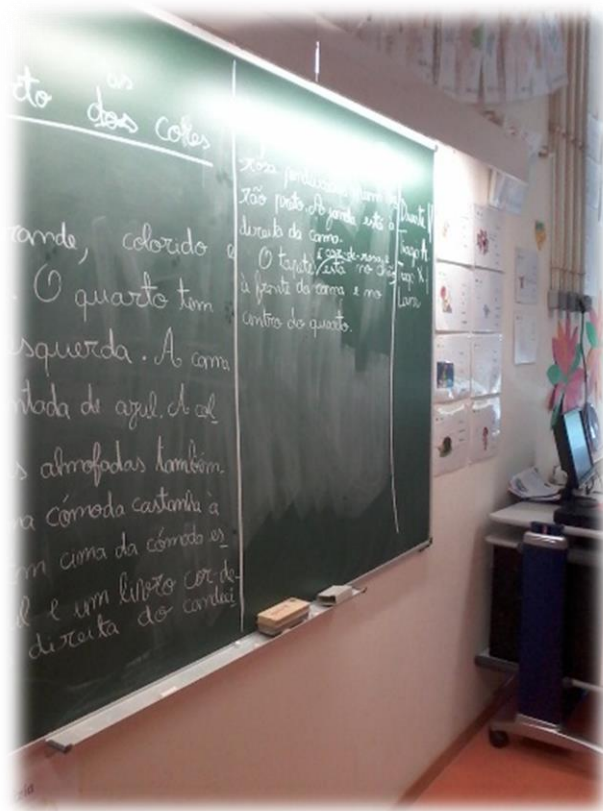 as
dos cores
grande, colorido e
. O quarto tem
esquerda. A cama
de azul. A col
almofadas também
cómoda castanha à
em cima da cómoda es
e um livro cor-de-
direita do candei
rosa
rão preto. A janela está à
direita da cama.
é cor-de-rosa e
O tapete está no chão
à frente da cama e no
centro do quarto.
Duarte V
Tiago A.
Tiago X.
Laura